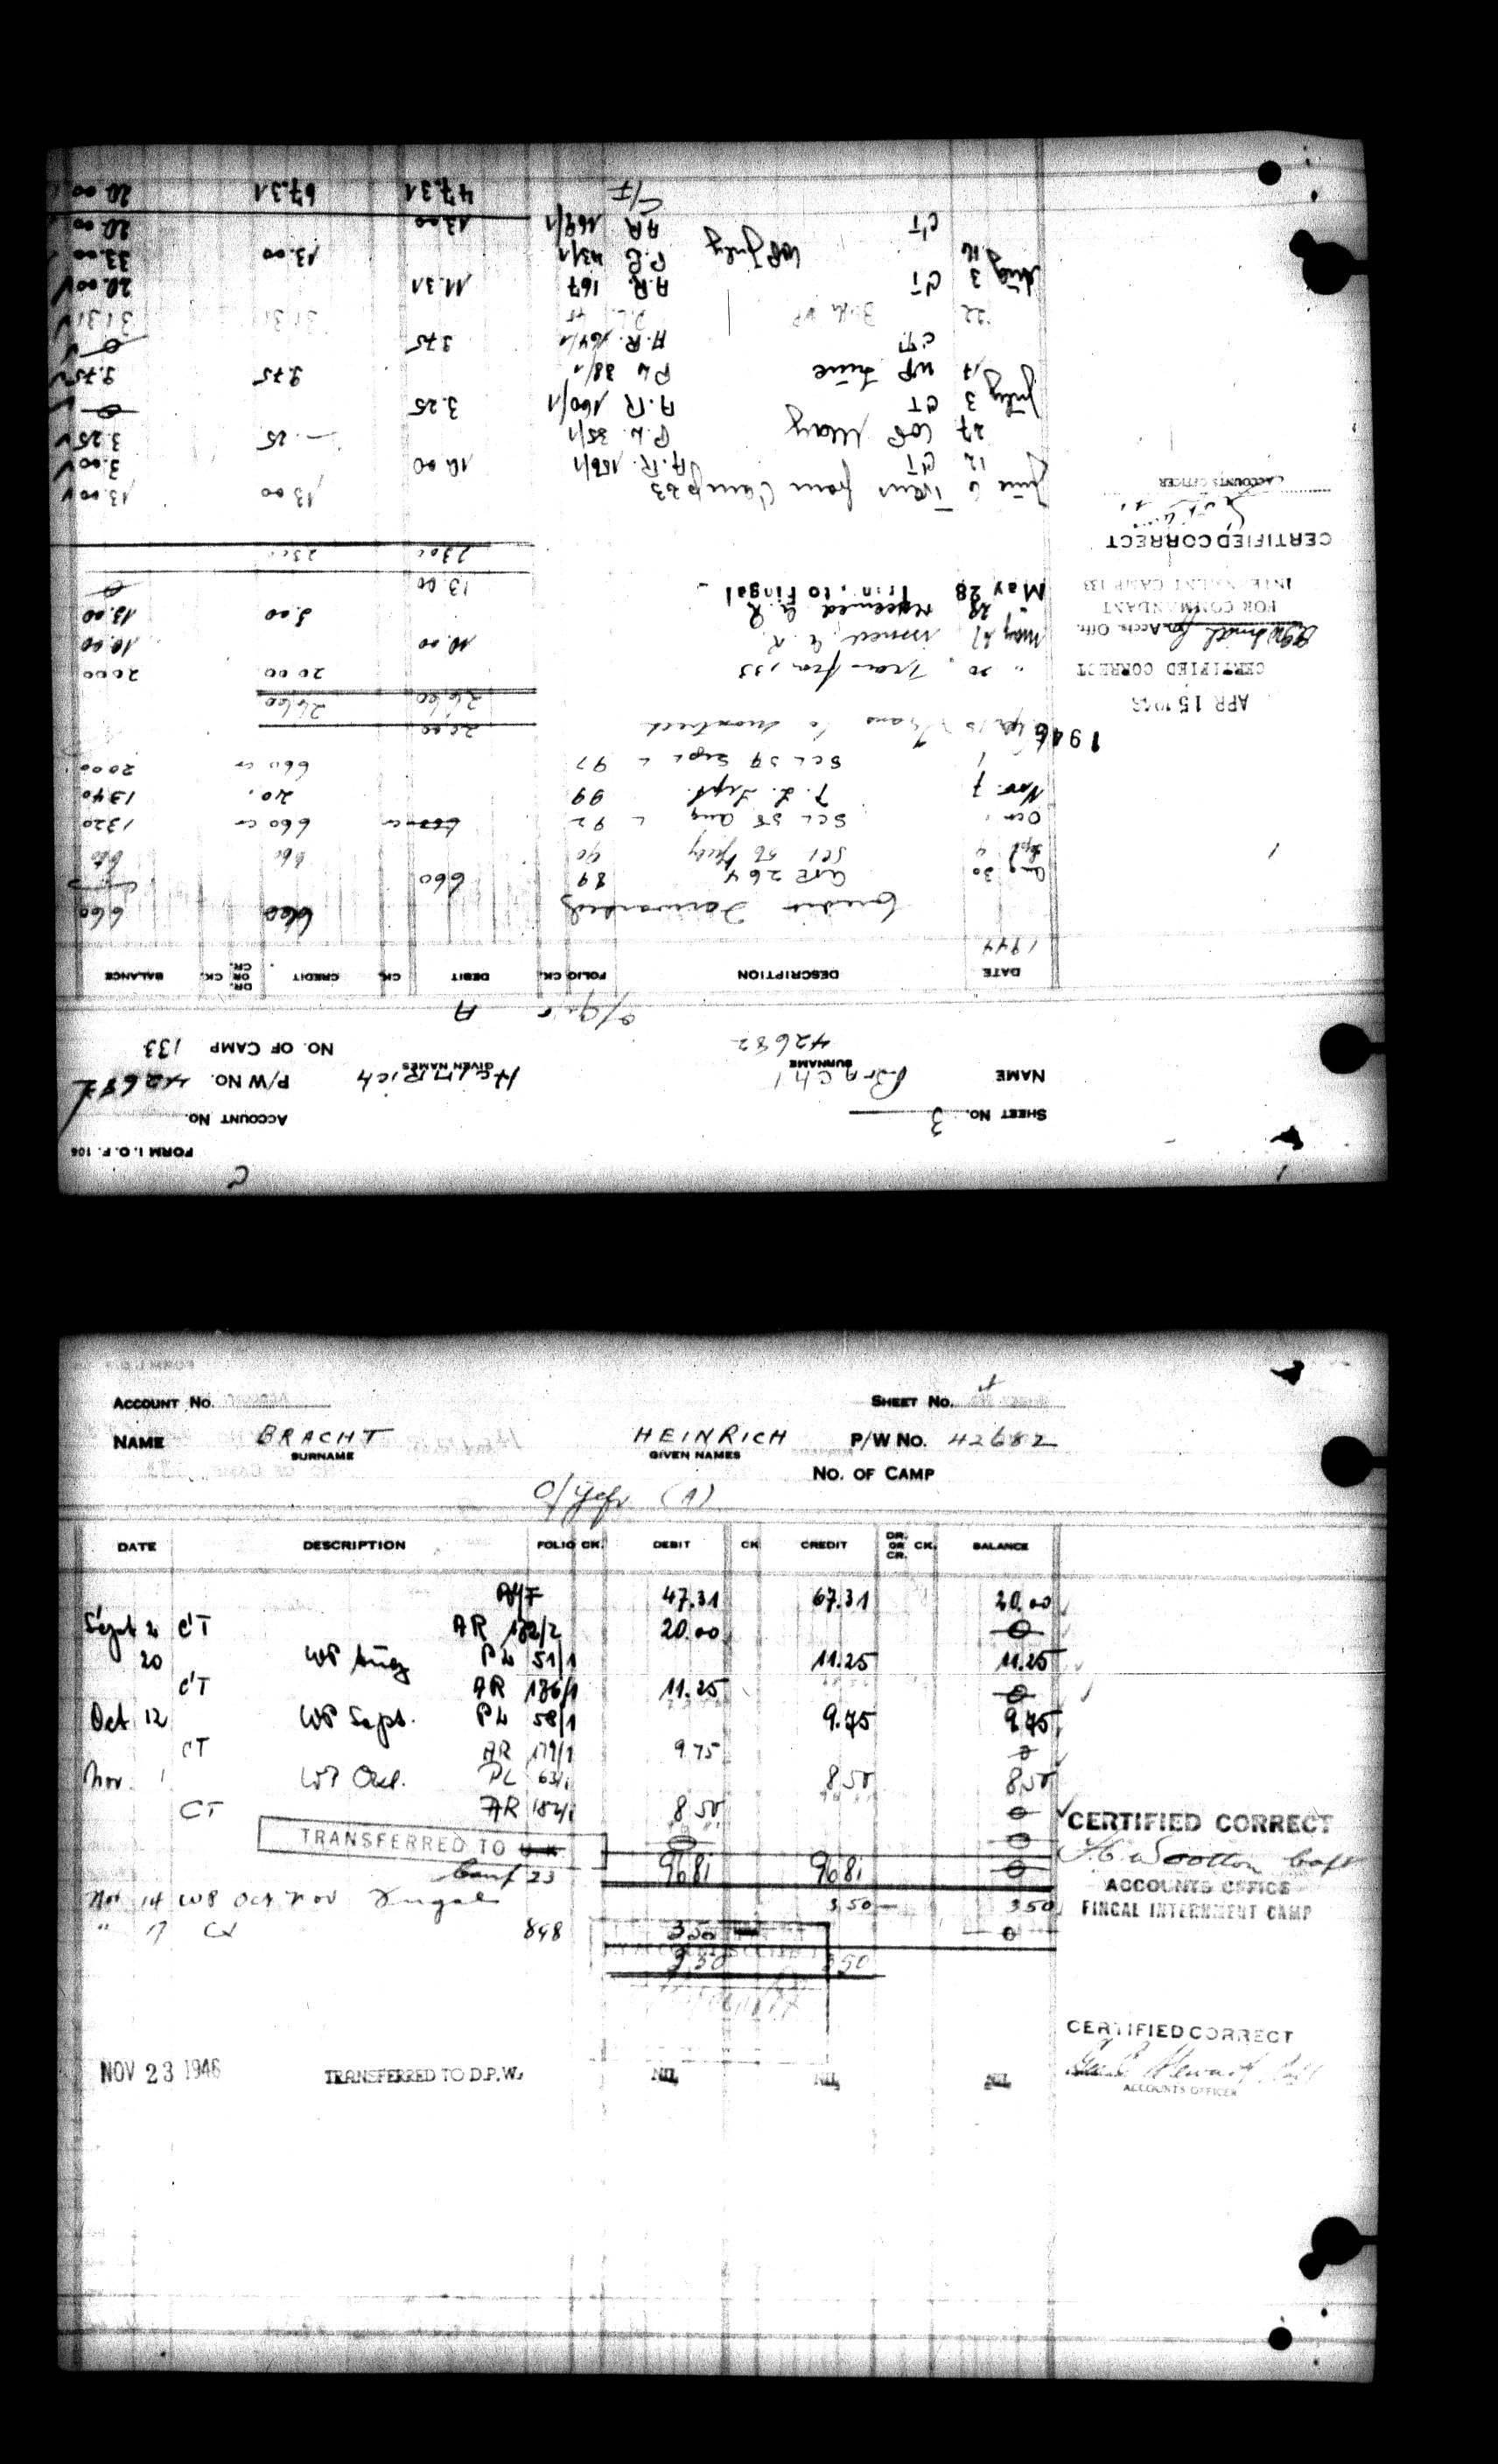 FORM I.O.F. 106
SHEET No. 3 ACCOUNT No.
NAME Bracht Heinrich P/W No. 42682
SURNAME GIVEN NAMES
42682 NO. OF CAMP 133
A
DATE DESCRIPTION FOLIO CK. DEBIT CK. CREDIT DR. OR CR. CK. BALANCE
1944
Credit Forwarded 660 660
Aug 30 AR 264 89 660
Sept SCL 56 July 90 660 660
Oct SCL 58 Aug 92 660 cr 660 cr 1320
Nov. 7 T.L. Sept. 99 20. 1340
SCL 59 Sept 97 660 cr 2000
1946 Apr 15 Trans to Montreal 20.00
APR 15 1946 2660 2660
CERTIFIED CORRECT
" 20 Tra. from 133 2000 2000
Accts. Offr. May 27 issued A R 10.00 10.00
FOR COMMANDANT 28 Received A. R 3.00 13.00
INTERNMENT CAMP 133 May 28 Tran. to Fingal 13.00 0
2300 2300
CERTIFIED CORRECT
June 6 Trans from Camp 23 13.00 13.00
ACCOUNTS OFFICER
12 CT A.R. 156/1 10.00 3.00
27 WP May P.L. 35/1 -.25 3.25
July 3 CT A.R. 160/1 3.25 0
17 WP June PL 38/1 9.75 9.75
CT A.R. 164/1 9.75 0
22 P.L. 45 31.31 31.31
Aug 3 CT A.R. 167 11.31 20.00
16 WP July P.L. 43/1 13.00 33.00
CT AR 169/1 13.00 20.00
C/F 47.31 67.31 20.00
ACCOUNT No. SHEET No. 4
NAME BRACHT HEINRICH P/W No. 42682
SURNAME GIVEN NAMES
NO. OF CAMP
O/Gefr (A)
DATE DESCRIPTION FOLIO CK. DEBIT CK CREDIT DR. OR CR. CK. BALANCE
B/F 47.31 67.31 20.00
Sept 2 CT AR 182/2 20.00 0
20 WP Aug PL 51/1 11.25 11.25
CT AR 186/1 11.25 0
Oct 12 WP Sept. PL 58/1 9.75 9.75
CT AR 179/1 9.75 0
Nov. 1 WP Oct. PL 63/1 8.50 8.50
CT AR 182/1 8.50 0
TRANSFERRED TO U K 0 0 CERTIFIED CORRECT
Camp 23 96.81 96.81 0 Wootton Capt
ACCOUNTS OFFICE
Nov 14 WP Oct Nov Fingal 3.50 3.50 FINGAL INTERNMENT CAMP
" 17 CT 898 3.50 0
3.50 3.50
CERTIFIED CORRECT
NOV 23 1946 TRANSFERRED TO D.P.W. NIL NIL NIL Stewart
ACCOUNTS OFFICER